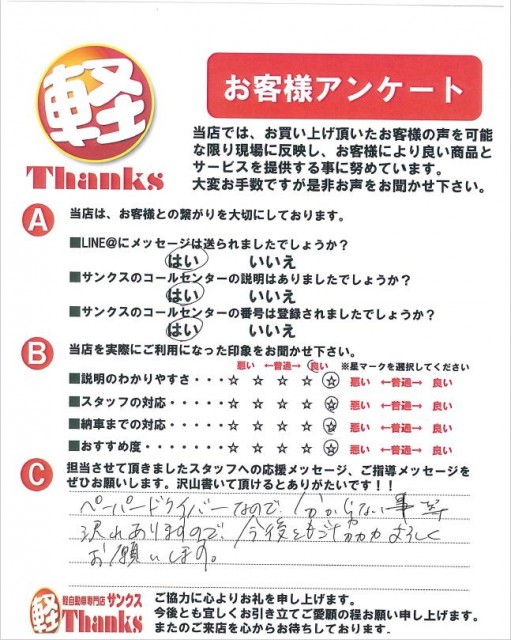 軽
Thanks
お客様アンケート
当店では、お買い上げ頂いたお客様の声を可能
な限り現場に反映し、お客様により良い商品と
サービスを提供する事に努めています。
大変お手数ですが是非お声をお聞かせ下さい。
A 当店は、お客様との繋がりを大切にしております。
■LINE@にメッセージは送られましたでしょうか？
はい いいえ
■サンクスのコールセンターの説明はありましたでしょうか？
はい いいえ
■サンクスのコールセンターの番号は登録されましたでしょうか？
はい いいえ
B 当店を実際にご利用になった印象をお聞かせ下さい。
悪い ←普通→ 良い ※星マークを選択してください
■説明のわかりやすさ・・・・☆ ☆ ☆ ☆ ☆ 悪い ←普通→ 良い
■スタッフの対応・・・・・☆ ☆ ☆ ☆ ☆ 悪い ←普通→ 良い
■納車までの対応・・・・・☆ ☆ ☆ ☆ ☆ 悪い ←普通→ 良い
■おすすめ度・・・・・・・☆ ☆ ☆ ☆ ☆ 悪い ←普通→ 良い
C 担当させて頂きましたスタッフへの応援メッセージ、ご指導メッセージを
ぜひお願いします。沢山書いて頂けるとありがたいです！！
ペーパードライバーなので、分からない事等
沢山ありますので、今後ともご協力よろしく
お願いします。
軽 軽自動車専門店 サンクス
Thanks
ご協力に心よりお礼を申し上げます。
今後とも宜しくお引き立てご愛願の程お願い申し上げます。
またのご来店を心からお待ちしております.